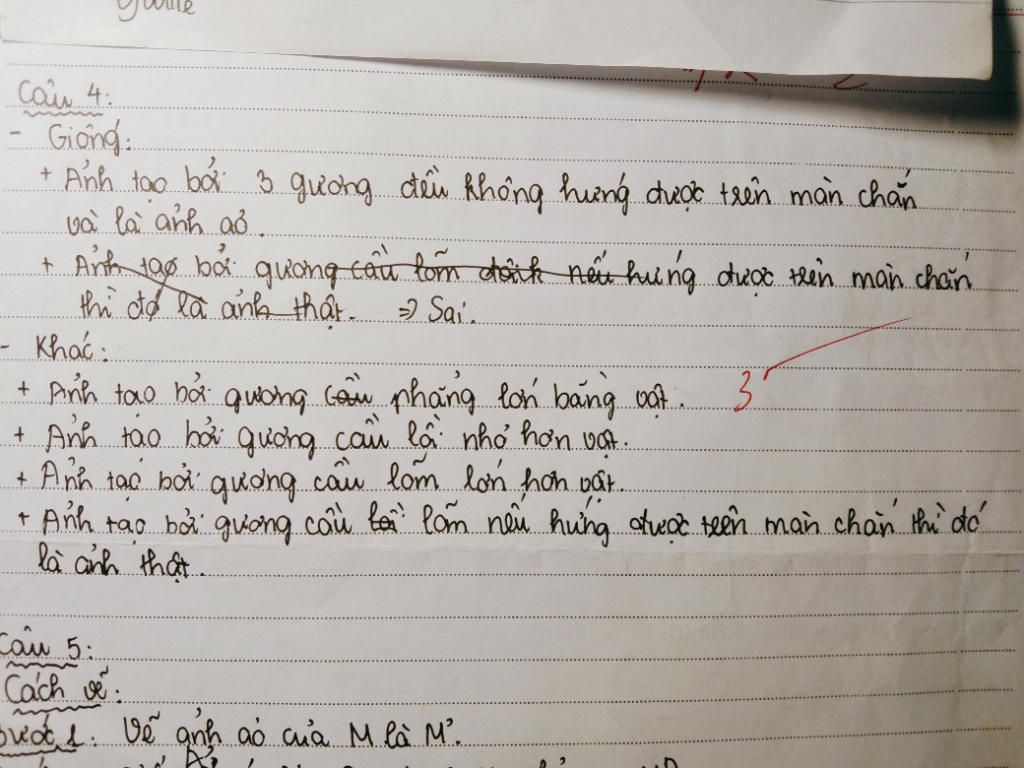 Câu 4:
- Giống:
+ Ảnh tạo bởi 3 gương đều không hứng được trên màn chắn
và là ảnh ảo.
+ Ảnh tạo bởi gương cầu lõm nếu hứng được trên màn chắn
thì đó là ảnh thật. => Sai.
- Khác:
+ Ảnh tạo bởi gương cầu phẳng lớn bằng vật. 3
+ Ảnh tạo bởi gương cầu lồi nhỏ hơn vật.
+ Ảnh tạo bởi gương cầu lõm lớn hơn vật.
+ Ảnh tạo bởi gương cầu lồi lõm nếu hứng được trên màn chắn thì đó
là ảnh thật.
Câu 5:
Cách vẽ:
Bước 1: Vẽ ảnh ảo của M là M'.